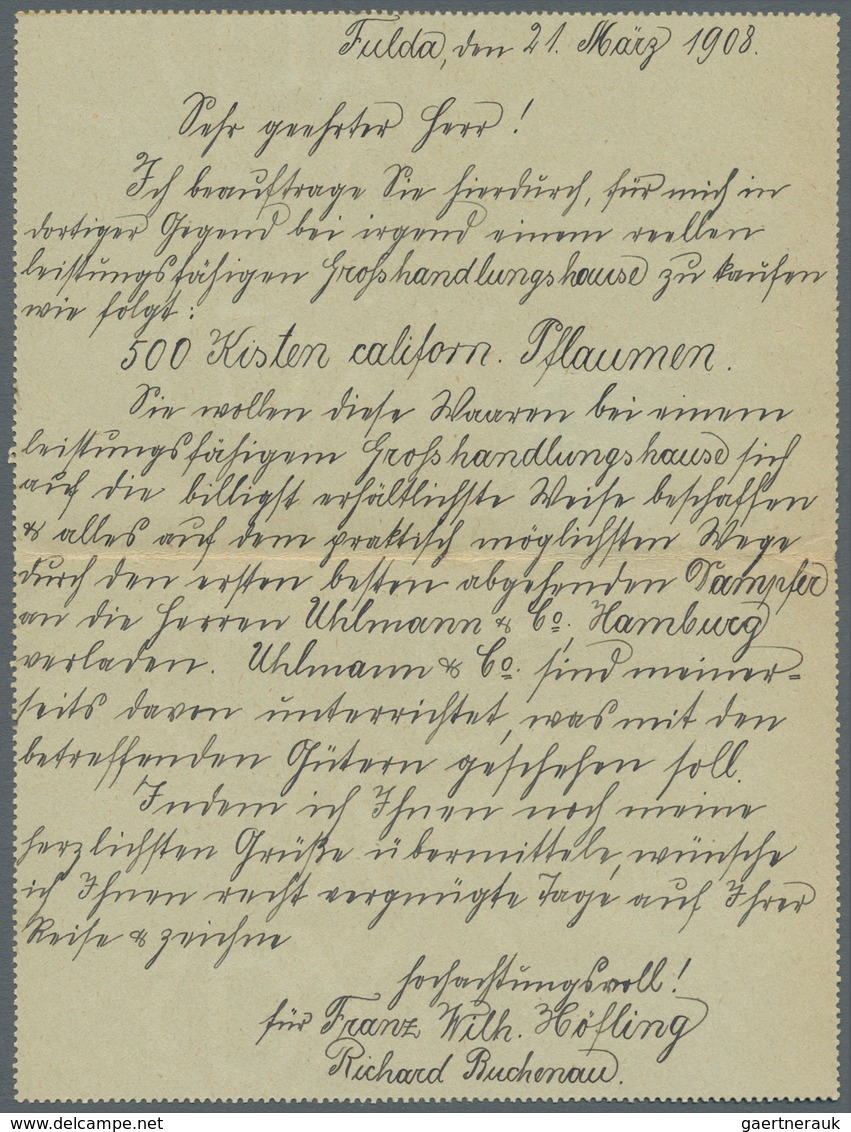 Fulda, den 21. März 1908.
Sehr geehrter Herr!
Ich beauftrage Sie hierdurch, für mich in
dortiger Gegend bei irgend einem reellen
leistungsfähigen Großhandlungshause zu kaufen
wie folgt:
500 Kisten californ. Pflaumen.
Sie wollen diese Waaren bei einem
leistungsfähigem Großhandlungshause sich
auf die billigst erhältlichste Weise beschaffen
& alles auf dem praktisch möglichsten Wege
durch den ersten besten abgehenden Dampfer
an die Herren Uhlmann & Co, Hamburg
verladen. Uhlmann & Co. sind meiner=
seits davon unterrichtet, was mit den
betreffenden Gütern geschehen soll.
Indem ich Ihnen noch meine
herzlichsten Grüße übermittele, wünsche
ich Ihnen recht vergnügte Tage auf Ihrer
Reise & zeichne
hochachtungsvoll!
für Franz Wilh. Höfling
Richard Buchenau.
www.delcampe.net
gaertnerauk